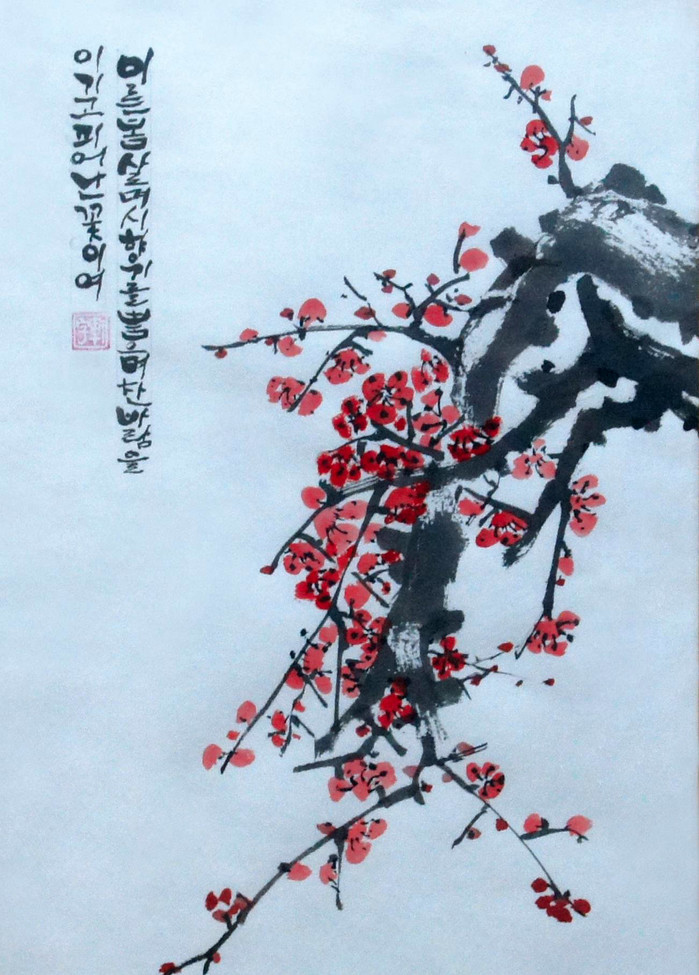 이른봄 살며시 향기를 뿜으며 찬바람을
이기고 피어난 꽃이여